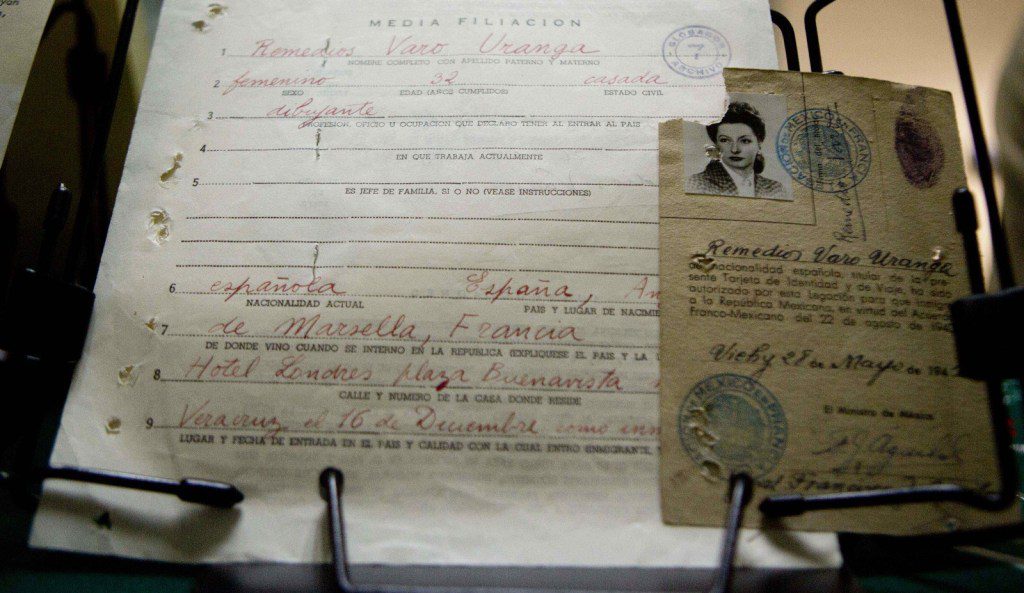 MEDIA FILIACION
1 Remedios Varo Uranga
NOMBRE COMPLETO CON APELLIDO PATERNO Y MATERNO
2 femenino 32 casada
SEXO EDAD (AÑOS CUMPLIDOS) ESTADO CIVIL
3 dibujante
PROFESION, OFICIO U OCUPACION QUE DECLARO TENER AL ENTRAR AL PAIS
4
EN QUE TRABAJA ACTUALMENTE
5
ES JEFE DE FAMILIA, SI O NO (VEASE INSTRUCCIONES)
6 española España, An
NACIONALIDAD ACTUAL PAIS Y LUGAR DE NACIMIE
7 de Marsella, Francia
DE DONDE VINO CUANDO SE INTERNO EN LA REPUBLICA (EXPLIQUESE EL PAIS Y LA
8 Hotel Londres plaza Buenavista
CALLE Y NUMERO DE LA CASA DONDE RESIDE
9 Veracruz el 16 de Diciembre como inm
LUGAR Y FECHA DE ENTRADA EN EL PAIS Y CALIDAD CON LA CUAL ENTRO INMIGRANTE,
7
ARCHIVO
Remedios Varo Uranga
de nacionalidad española, titular de la pre-
sente Tarjeta de Identidad y de Viaje, ha sido
autorizado por esta Legación para que
a la República Mexicana, en virtud del
Franco-Mexicano del 22 de agosto de 194
Vichy 28 de Mayo de 194
El Ministro de México